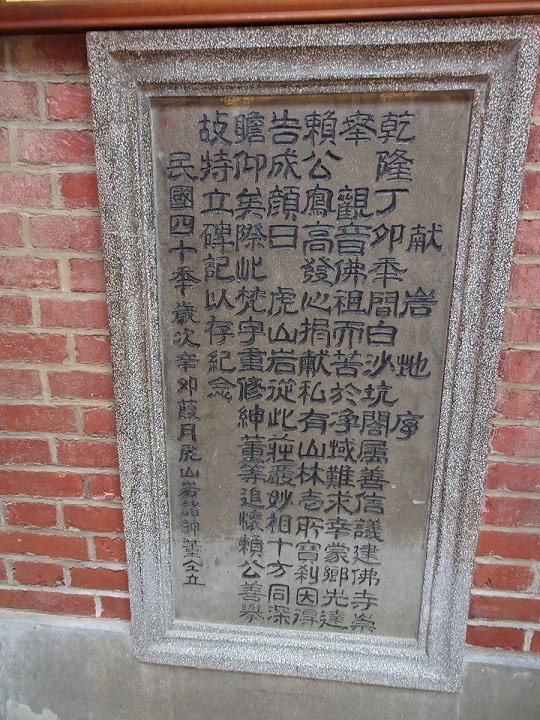 献岩地序
乾隆丁卯年間白沙坑閤屬善信議建佛寺崇
奉　觀音佛祖而苦於净域難求幸蒙鄉先達
賴公寫高發心捐献私有山林壱所寶刹因得
告成顔曰　虎山岩從此莊嚴妙相十方同深
瞻仰矣際此梵宇重修紳董等追懷賴公善舉
故特立碑記以存紀念
民國四十年歲次辛卯葭月虎山岩諸紳董仝立